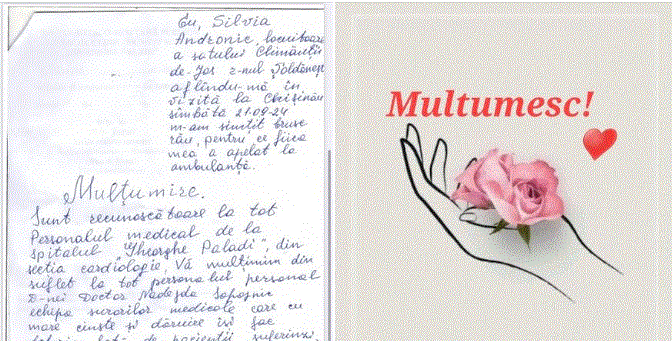 Eu, Silvia
Andronic, locuitoare
a satului Climăuții
de-Jos r-nul Șoldănești
aflîndu-mă în
vizită la Chișinău
sîmbătă 21.09.24
m-am simțit brusc
rău, pentru ce fiica
mea a apelat la
ambulanță.
Mulțumire.
Sunt recunoscătoare la tot
Personalul medical de la
spitalul "Gheorghe Paladi", din
secția cardiologie, Vă mulțumim din
suflet la tot personalul personal
D-nei Doctor Nadejda Sapojnic
echipa surorilor medicale care cu
mare cinste și dăruire își fac
de pacienții suferinzi,
Multumesc!